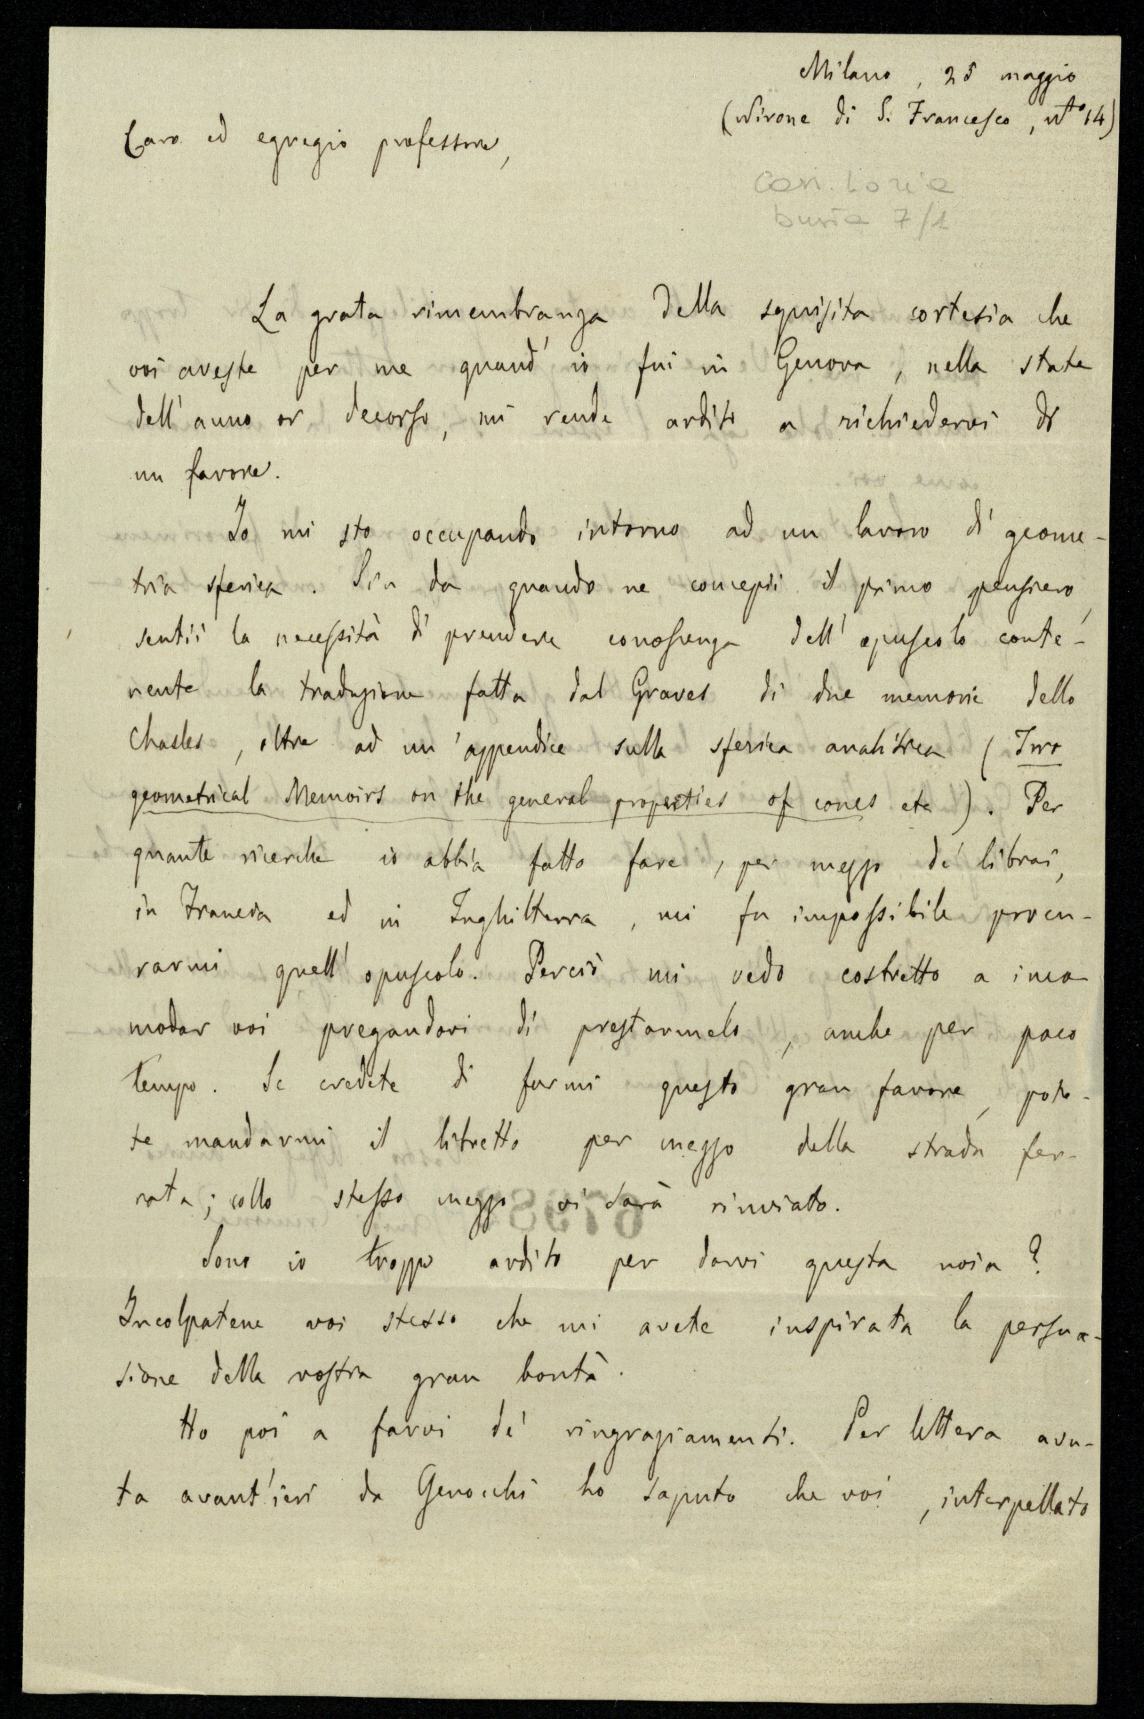 Milano, 25 maggio
(Nirone di S. Francesco, nto 14)
Caro ed egregio professore,
Cass. Loria
busta 7/1
La grata rimembranza della squisita cortesia che
voi aveste per me quand'io fui in Genova, nella state
dell'anno or decorso, mi rende ardito a richiedervi di
un favore.
Io mi sto occupando intorno ad un lavoro di geome-
tria sferica. Sin da quando ne concepii il primo pensiero,
sentii la necessità di prendere conoscenza dell'opuscolo conte-
nente la traduzione fatta dal Graves di due memorie dello
Chasles, oltre ad un'appendice sulla sferica analitica (Two
geometrical Memoirs on the general properties of cones etc). Per
quante ricerche io abbia fatto fare, per mezzo de' librai,
in Francia ed in Inghilterra, mi fu impossibile procu-
rarmi quell'opuscolo. Perciò mi vedo costretto a inco-
modar voi pregandovi di prestarmelo, anche per poco
tempo. Se credete di farmi questo gran favore, pote-
te mandarmi il libretto per mezzo della strada fer-
rata; collo stesso mezzo vi sarà rinviato.
Sono io troppo ardito per darvi questa noia?
Incolpatene voi stesso che mi avete inspirata la persua-
sione della vostra gran bontà.
Ho poi a farvi de' ringraziamenti. Per lettera avu-
ta avant'ieri da Genocchi ho saputo che voi, interpellato